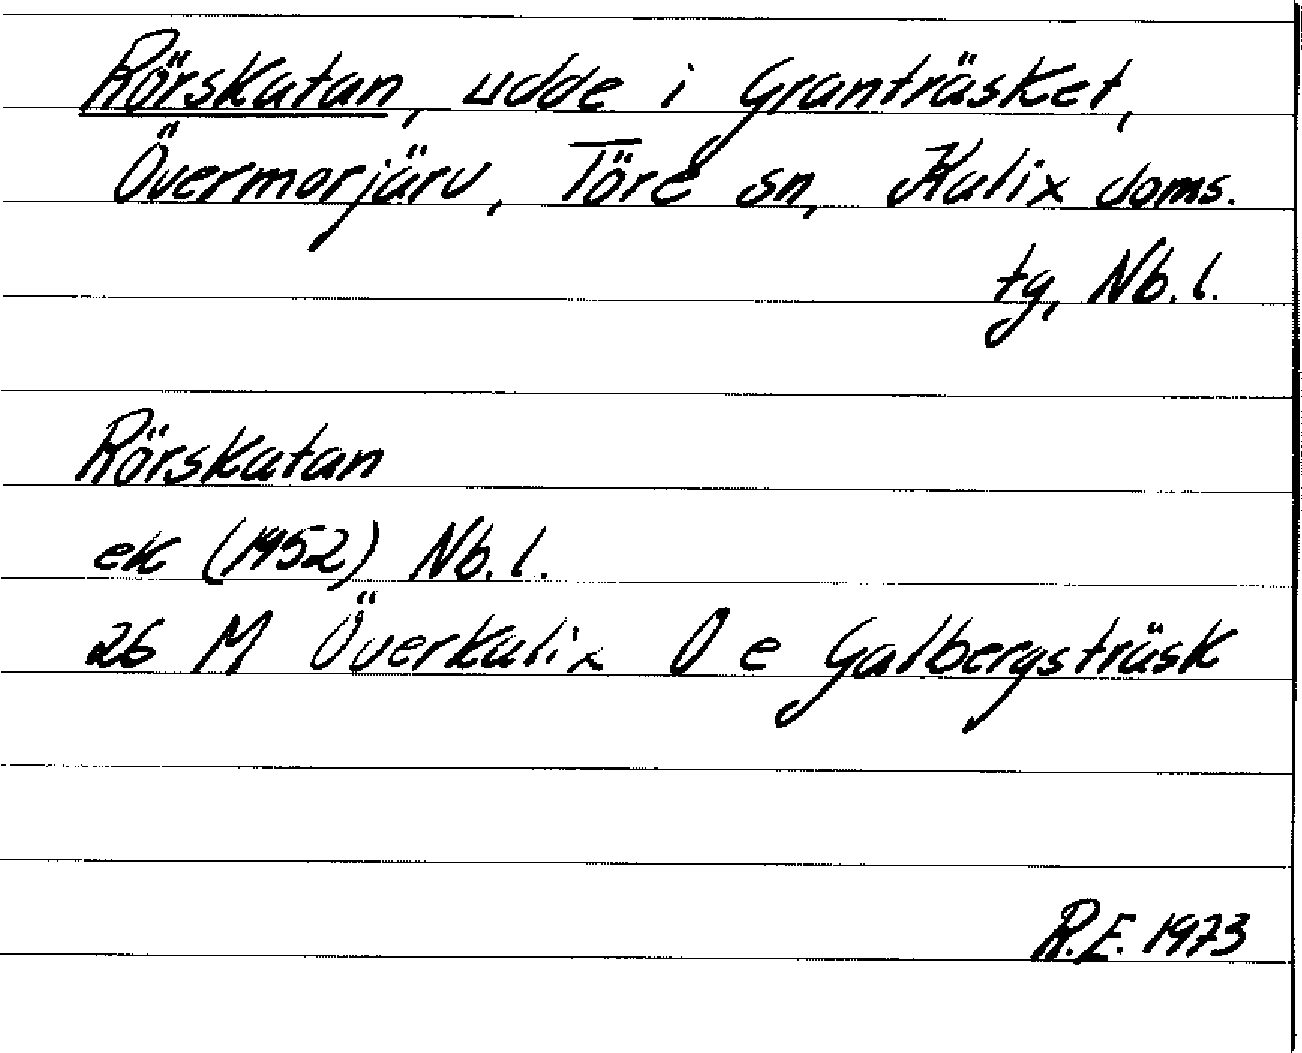 Rörskatan, udde i Granträsket,
Övermorjärv, Töre sn, Kalix doms.
tg, Nb. l.
Rörskatan
ek (1952) Nb. l.
26 M Överkalix O e Galbergsträsk
R.E. 1973